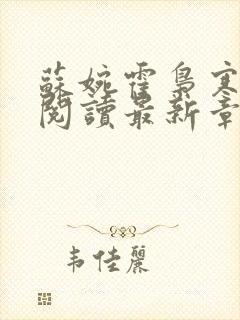 蘇婉霍梟寒
閱讀最新章
韦佳麗